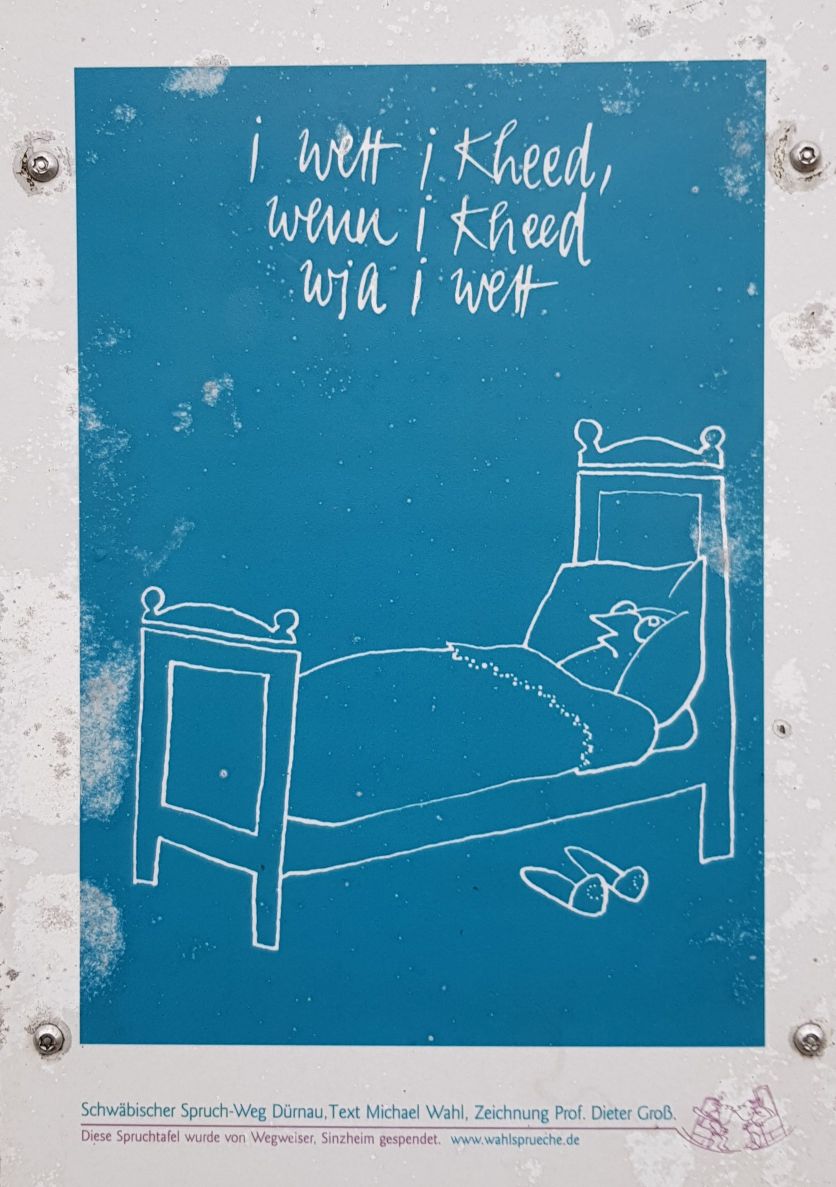 i wett i kheed,
wenn i kheed
wia i wett
Schwäbischer Spruch-Weg Dürnau, Text Michael Wahl, Zeichnung Prof. Dieter Groß.
Diese Spruchtafel wurde von Wegweiser, Sinzheim gespendet. www.wahlsprueche.de